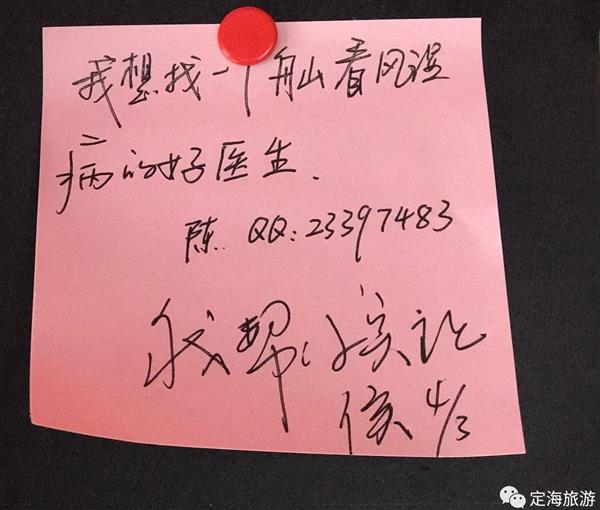 我想找一个舟山看风湿
病的好医生.
陈. QQ:23397483
我帮
侯 4/3
定海旅游